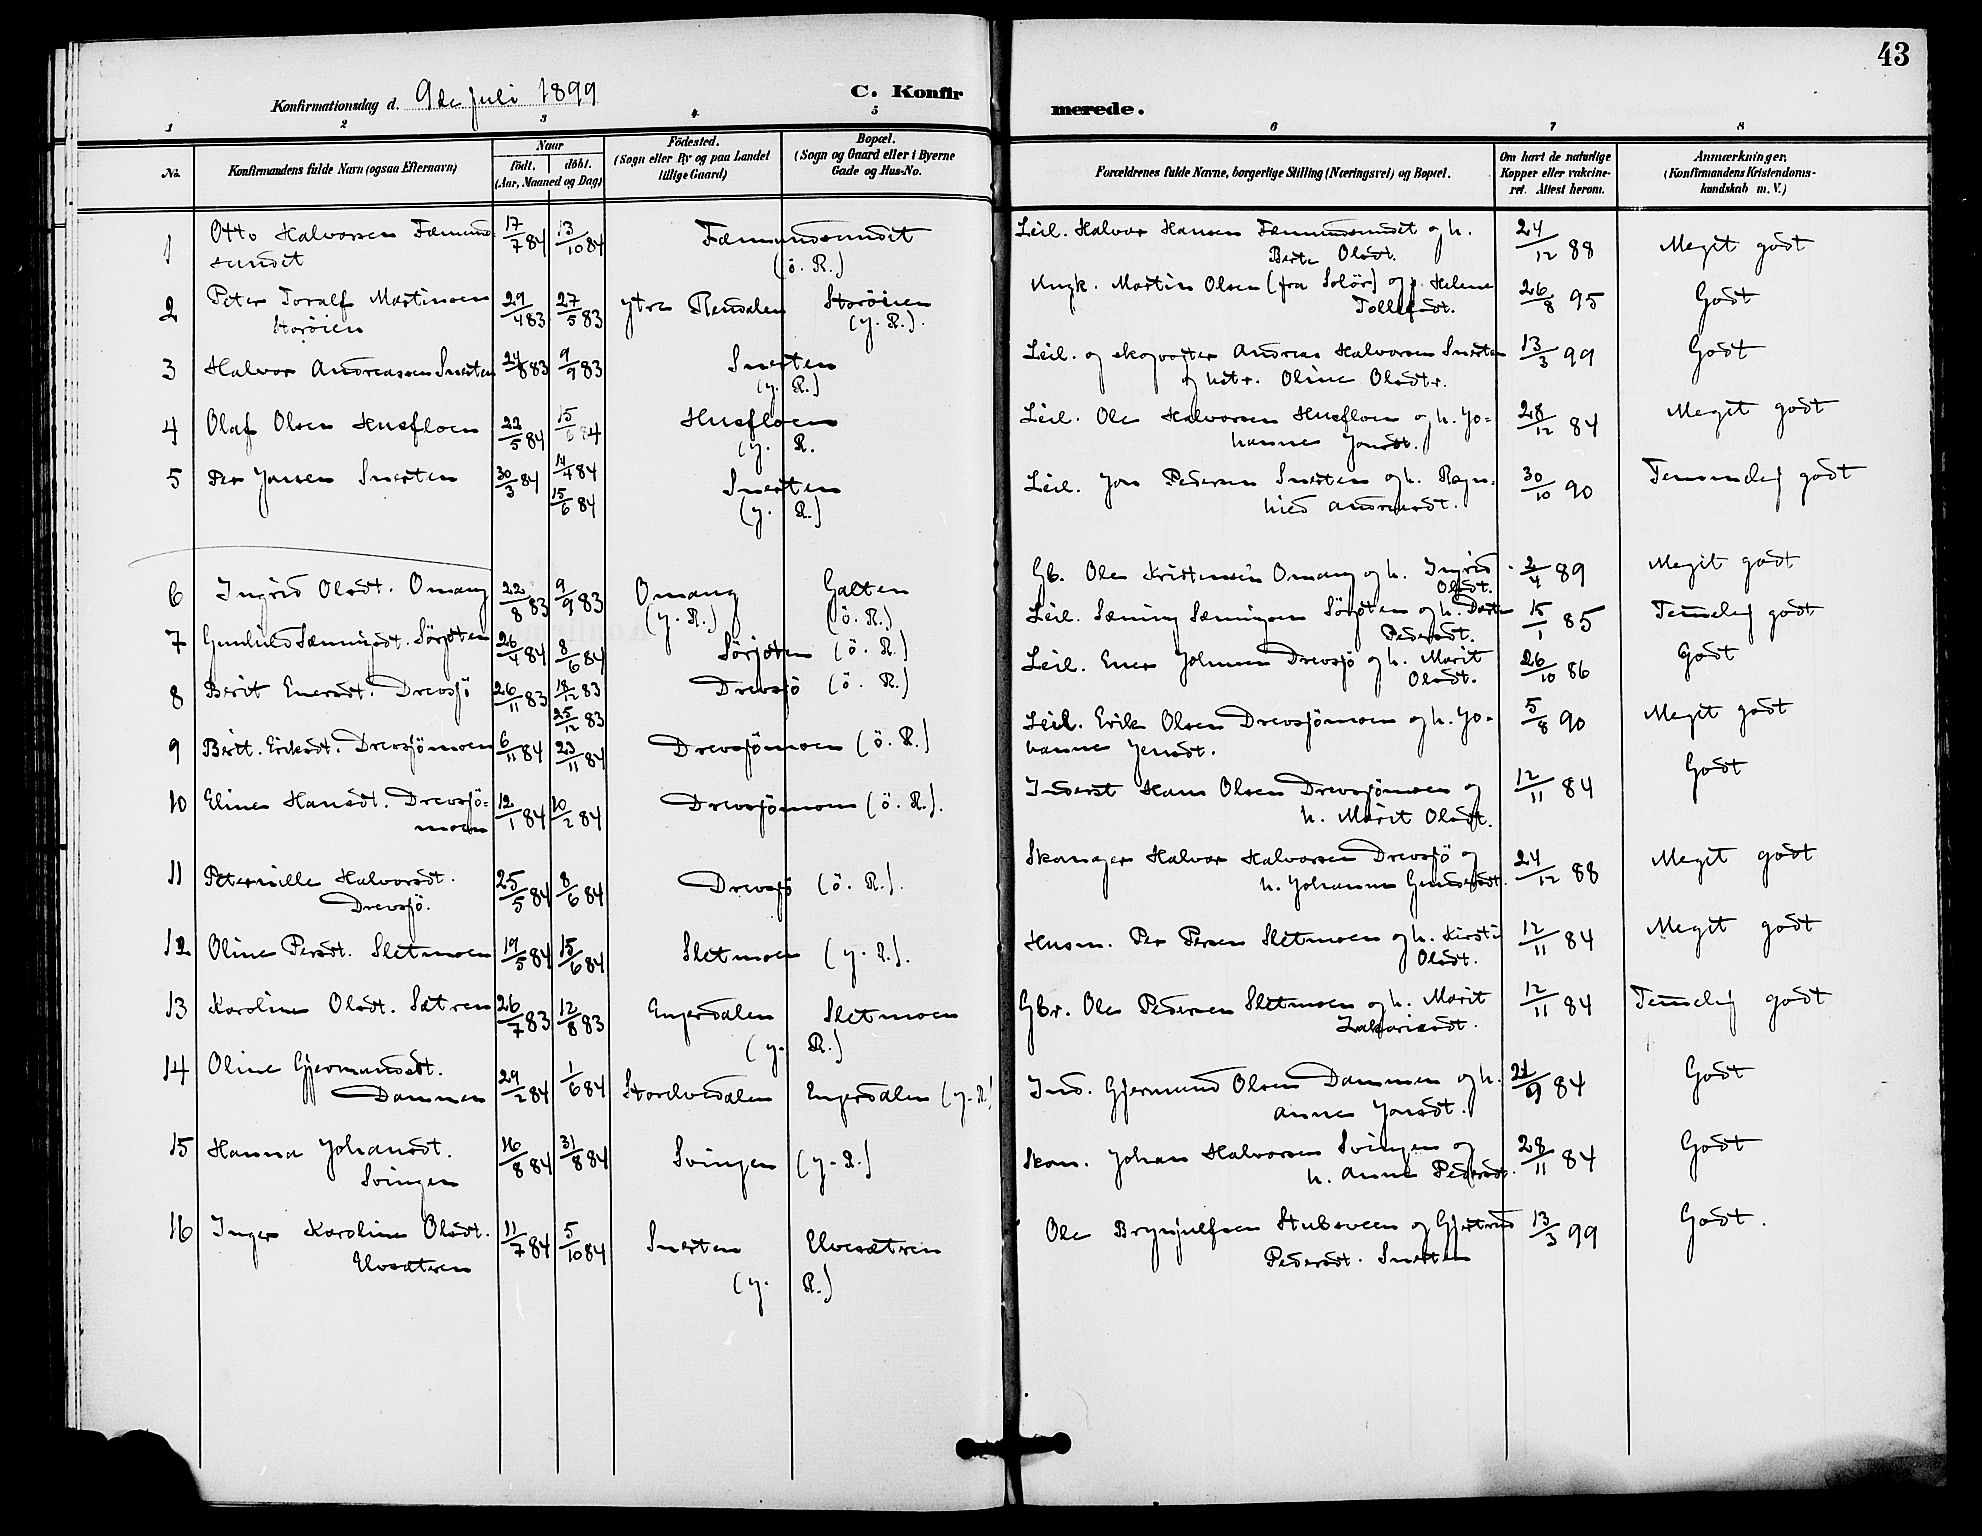 43
Konfirmationsdag d. 9de juli 1899
C. Konfirmerede.
1 2 3 4 5 6 7 8
No.
Konfirmandens fulde Navn (ogsaa Efternavn)
Naar
født. døbt.
(Aar, Maaned og Dag)
Fødested.
(Sogn eller By og paa Landet
tillige Gaard)
Bopæl.
(Sogn og Gaard eller i Byerne
Gade og Hus-No.
Forældrenes fulde Navne, borgerlige Stilling (Næringsvei) og Bopæl.
Om havt de naturlige
Kopper eller vakcine-
ret. Attest herom.
Anmærkninger,
(Konfirmandens Kristendoms-
kundskab m. V.)
1 Otto Halvorsen Fæmund- 17/7 84 13/10 84 Fæmundsundet Leil. Halvor Hansen Fæmundsundet og h. 24/12 88 Meget godt
sundet (ö. R.) Berte Olsdt.
2 Peter Toralf Martinsen 29/4 83 27/5 83 ytre Rendalen Storöien Ungk. Martin Olsen (fra Solör) og p. Helene 26/8 95 Godt
Storöien (y. R.). Tollefsdt.
3 Halvor Andreassen Snerten 24/8 83 9/9 83 Snerten Leil. og skogvogter Andreas Halvorsen Snerten 13/3 99 Godt
(y. R.) og hstr. Oline Olsdtr.
4 Olaf Olsen Husfloen 22/5 84 15/6 84 Husfloen Leil. Ole Halvorsen Husfloen og h. Jo- 28/12 84 Meget godt
(y. R. hanne Jonsdt.
5 Per Jonsen Snerten 30/3 84 14/4 84 Snerten Leil. Jon Pedersen Snerten og h. Ragn- 30/10 90 Temmelig godt
15/6 84 (y. R.) hild Andreasdt.
6 Ingrid Olsdt. Omang 22/8 83 9/9 83 Omang Galten Gb. Ole Kristensen Omang og h. Ingrid 2/4 89 Meget godt
(y. R.) (ö. R.) Olsdt.
7 Gunhild Sæmingsdt. Sörjoten 26/4 84 8/6 84 Sörjoten (ö. R.) Leil. Sæming Sæmingsen Sörjoten og h. Dorte 15/1 85 Temelig godt
Pedersdt.
8 Berit Enersdt. Drevsjö 26/11 83 18/12 83 Drevsjö (ö. R.) Leil. Ener Johnsen Drevsjö og h. Marit 26/10 86 Godt
25/12 83 Olsdt.
9 Britt. Eriksdt. Drevsjömoen 6/11 84 23/11 84 Drevsjömoen (ö. R.) Leil. Erik Olsen Drevsjömoen og h. Jo- 5/8 90 Meget godt
hanne Jensdt.
10 Eline Hansdt. Drevsjö- 12/1 84 10/2 84 Drevsjömoen (ö. R.). Inderst Hans Olsen Drevsjömoen og 12/11 84 Godt
moen h. Marit Olsdt.
11 Peternille Halvorsdt. 25/5 84 8/6 84 Drevsjö (ö. R.). Skomager Halvor Halvorsen Drevsjö og 24/12 88 Meget godt
Drevsjö. h. Johanne Gundersdt.
12 Oline Persdt. Sletmoen 19/5 84 15/6 84 Sletmoen (y. R.). Husm. Per Persen Sletmoen og h. Kirsti 12/11 84 Meget godt
Olsdt.
13 Karoline Olsdt. Sætren 26/7 83 12/8 83 Engerdalen Sletmoen Gbr. Ole Pedersen Sletmoen og h. Marit 12/11 84 Temelig godt
(y. R.) Zakariasdt.
14 Oline Gjermundsdt. 29/2 84 1/6 84 Storelvedalen Engerdalen (y. R) Ind. Gjermund Olsen Dammen og h. /9 84 Godt
Dammen Anne Jonsdt.
15 Hanna Johansdt. 16/8 84 31/8 84 Svingen (y. R.) Skom. Johan Halvorsen Svingen og 28/11 84 Godt
Svingen h. Anne Pedersdt.
16 Inger Karoline Olsdt. 11/7 84 5/10 84 Snerten Elvesætren Ole Brynjulfsen Stubsveen og Gjertrud 13/3 99 Godt.
Elvesætren (y. R.) Pedersdt. Snerten